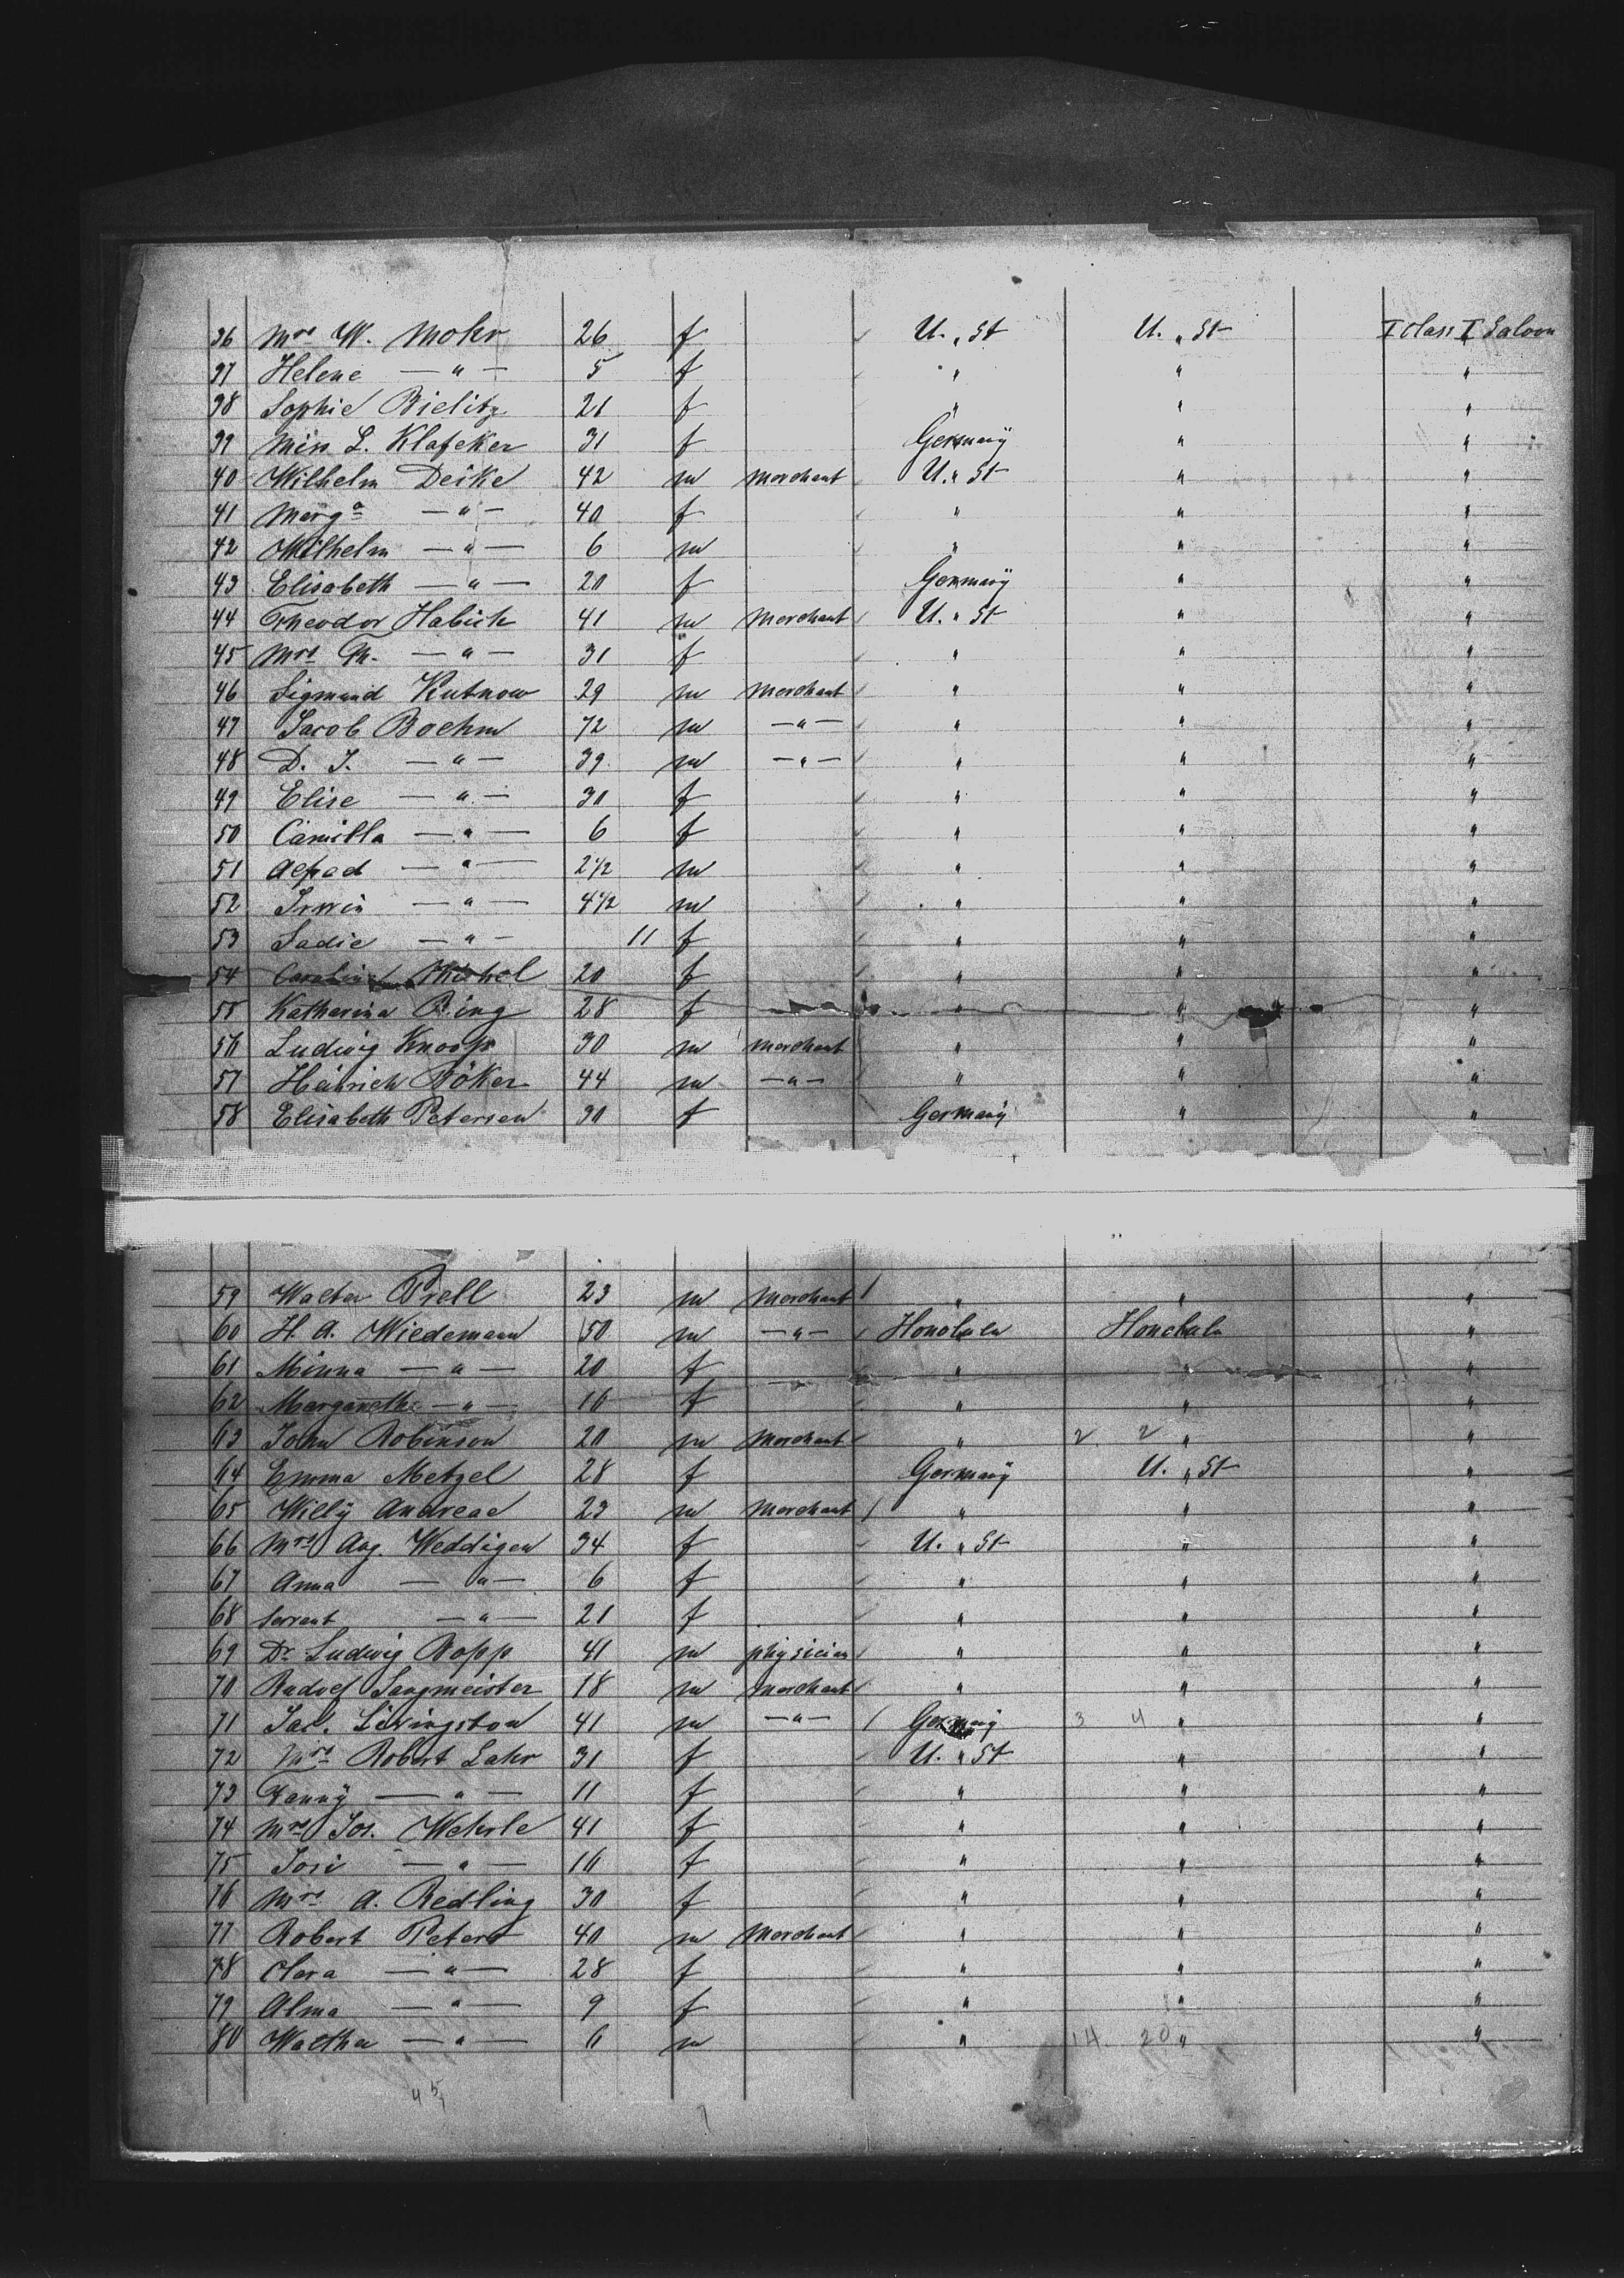 36 Mrs W. Mohr 26 f U. " St U. " St I Class I Saloon
37 Helene — " — 5 f " " "
38 Sophie Bielitz 21 f " " "
39 Miss L. Klafeker 31 f Germany " "
40 Wilhelm Deike 42 m Merchant U. " St " "
41 Marga — " — 40 f " " "
42 Wilhelm — " — 6 m " " "
43 Elisabeth — " — 20 f Germany " "
44 Theodor Habich 41 m Merchant U. " St " "
45 Mrs Th. — " — 31 f " " "
46 Sigmund Kutnow 29 m Merchant " " "
47 Jacob Boehm 72 m — " — " " "
48 D. J. — " — 39 m — " — " " "
49 Elise — " — 30 f " " "
50 Camilla — " — 6 f " " "
51 — " — 2 1/2 m " " "
52 Irwin — " — 4 1/2 m " " "
53 Sadie — " — 11 f " " "
54 20 f " " "
55 Katharina Bing 28 f " " "
56 Ludwig Knoop 30 m merchant " " "
57 Heinrich Böker 44 m — " — " " "
58 Elisabeth Petersen 30 f Germany " "
59 Walter Prell 23 m Merchant " " "
60 H. A. Wiedemann 50 m — " — Honolulu Honolulu "
61 Minna — " — 20 f " " "
62 Margarethe — " — 16 f " " "
63 John Robinson 20 m Merchant " 2 2 " "
64 Emma Metzel 28 f Germany U. " St "
65 Willy Andreae 23 m Merchant " " "
66 Mrs Aug. Weddigen 34 f U. " St " "
67 Anna — " — 6 f " " "
68 Servant — " — 21 f " " "
69 Dr Ludwig Bopp 41 m physician " " "
70 Rudolf Sangmeister 18 m Merchant " " "
71 Sal. Livingston 41 m — " — Germany 3 4 " "
72 Mrs Robert Lahr 31 f U. " St " "
73 Fanny — " — 11 f " " "
74 Mrs Jos. Wehrle 41 f " " "
75 Josi — " — 16 f " " "
76 Mrs A. Redling 30 f " " "
77 Robert Peters 40 m Merchant " " "
78 Clara — " — 28 f " " "
79 Alma — " — 9 f " " "
80 Walther — " — 6 m " 14 20 " "
45